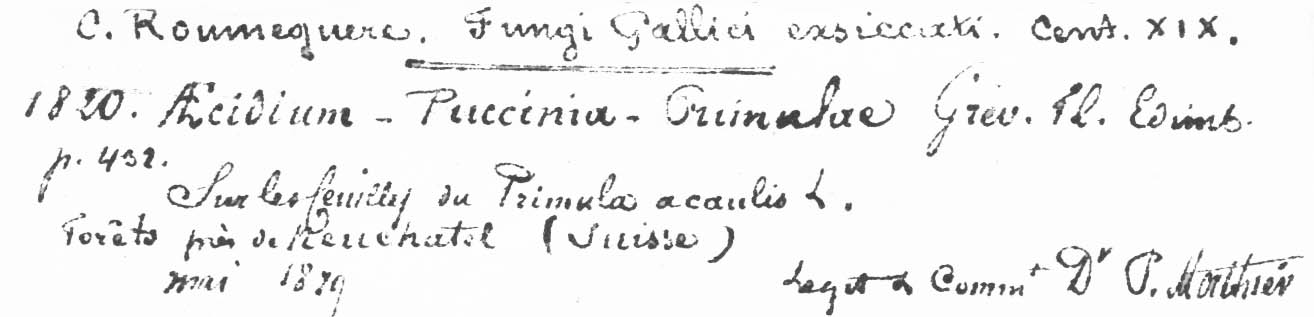 C. Roumeguere. Fungi Gallici exsiccati. Cent. XIX.
1820. Æcidium - Puccinia - Primulae Grev. Fl. Edimb.
p. 432.
Sur les feuilles du Primula acaulis L.
Forêts près de Neuchatel (Suisse)
mai 1879
Legit & Commt Dr P. Morthier